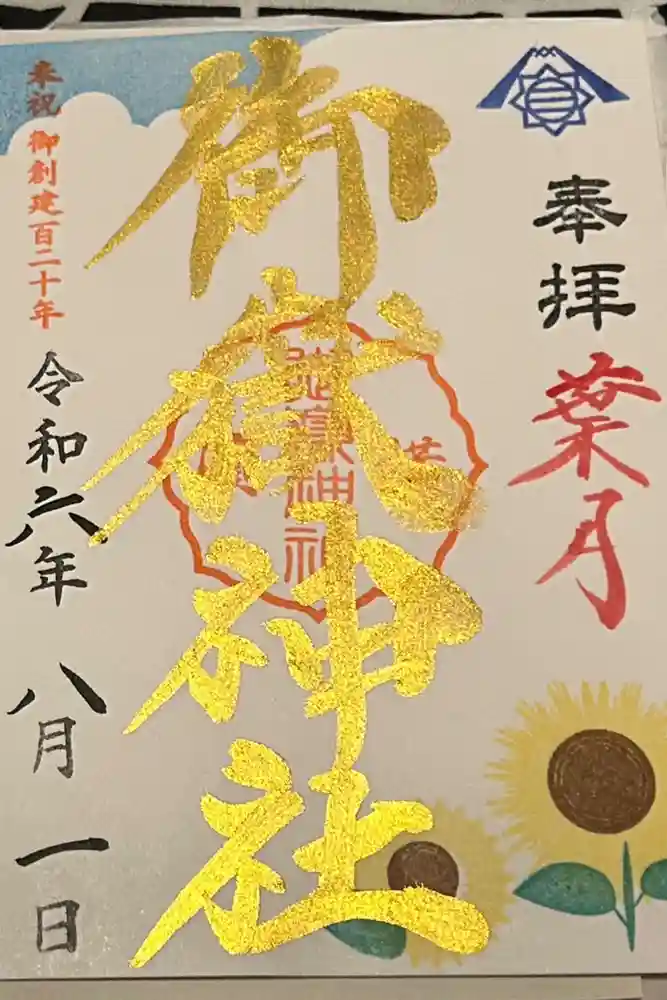 奉拝
葉月
御嶽神社
奉祝 御創建百二十年
令和六年 八月 一日